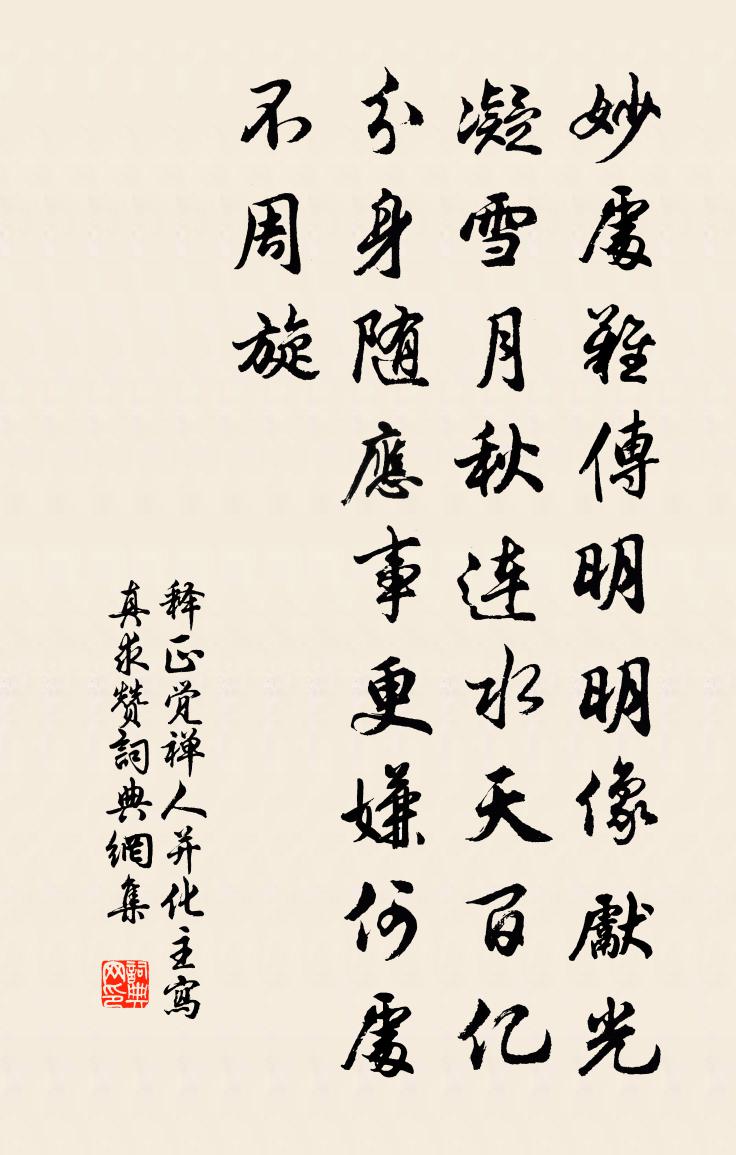 妙處難傳明明像獻光
凝雪月秋连水天百亿
分身随應事更嫌何處
不周旋
释正觉禅人并化主寫
真求赞詞典網集
詞典
网印